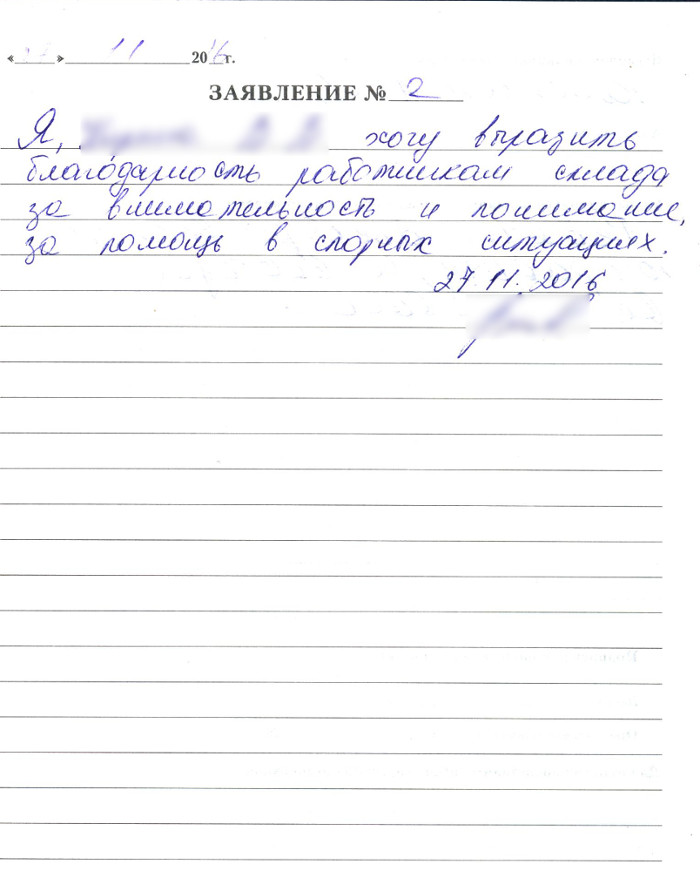 «27» 11 2016г.
ЗАЯВЛЕНИЕ № 2
Я, хочу выразить
благодарность работникам склада
за внимательность и понимание,
за помощь в спорных ситуациях.
27 11. 2016